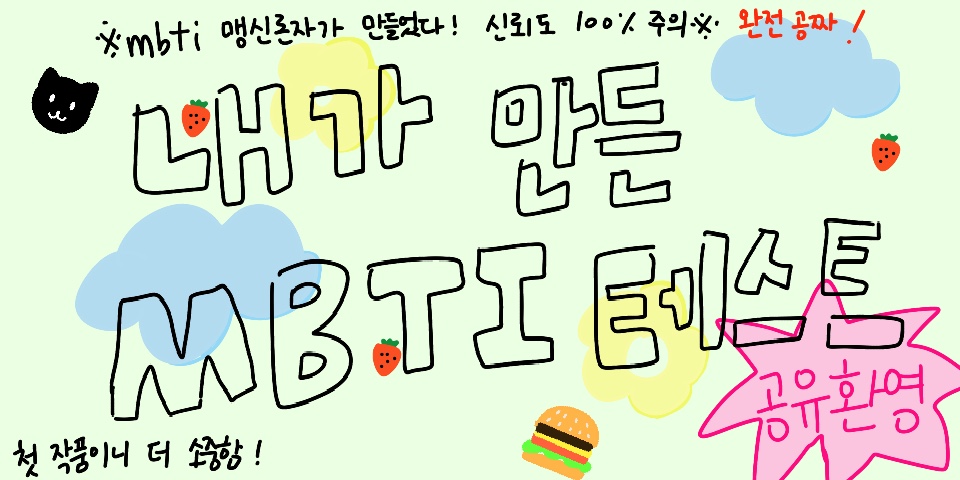 ※mbti 맹신론자가 만들었다! 신뢰도 100% 주의※ 완전 공짜!
내가 만든
MBTI 테스트
공유환영
첫 작품이니 더 소중함!